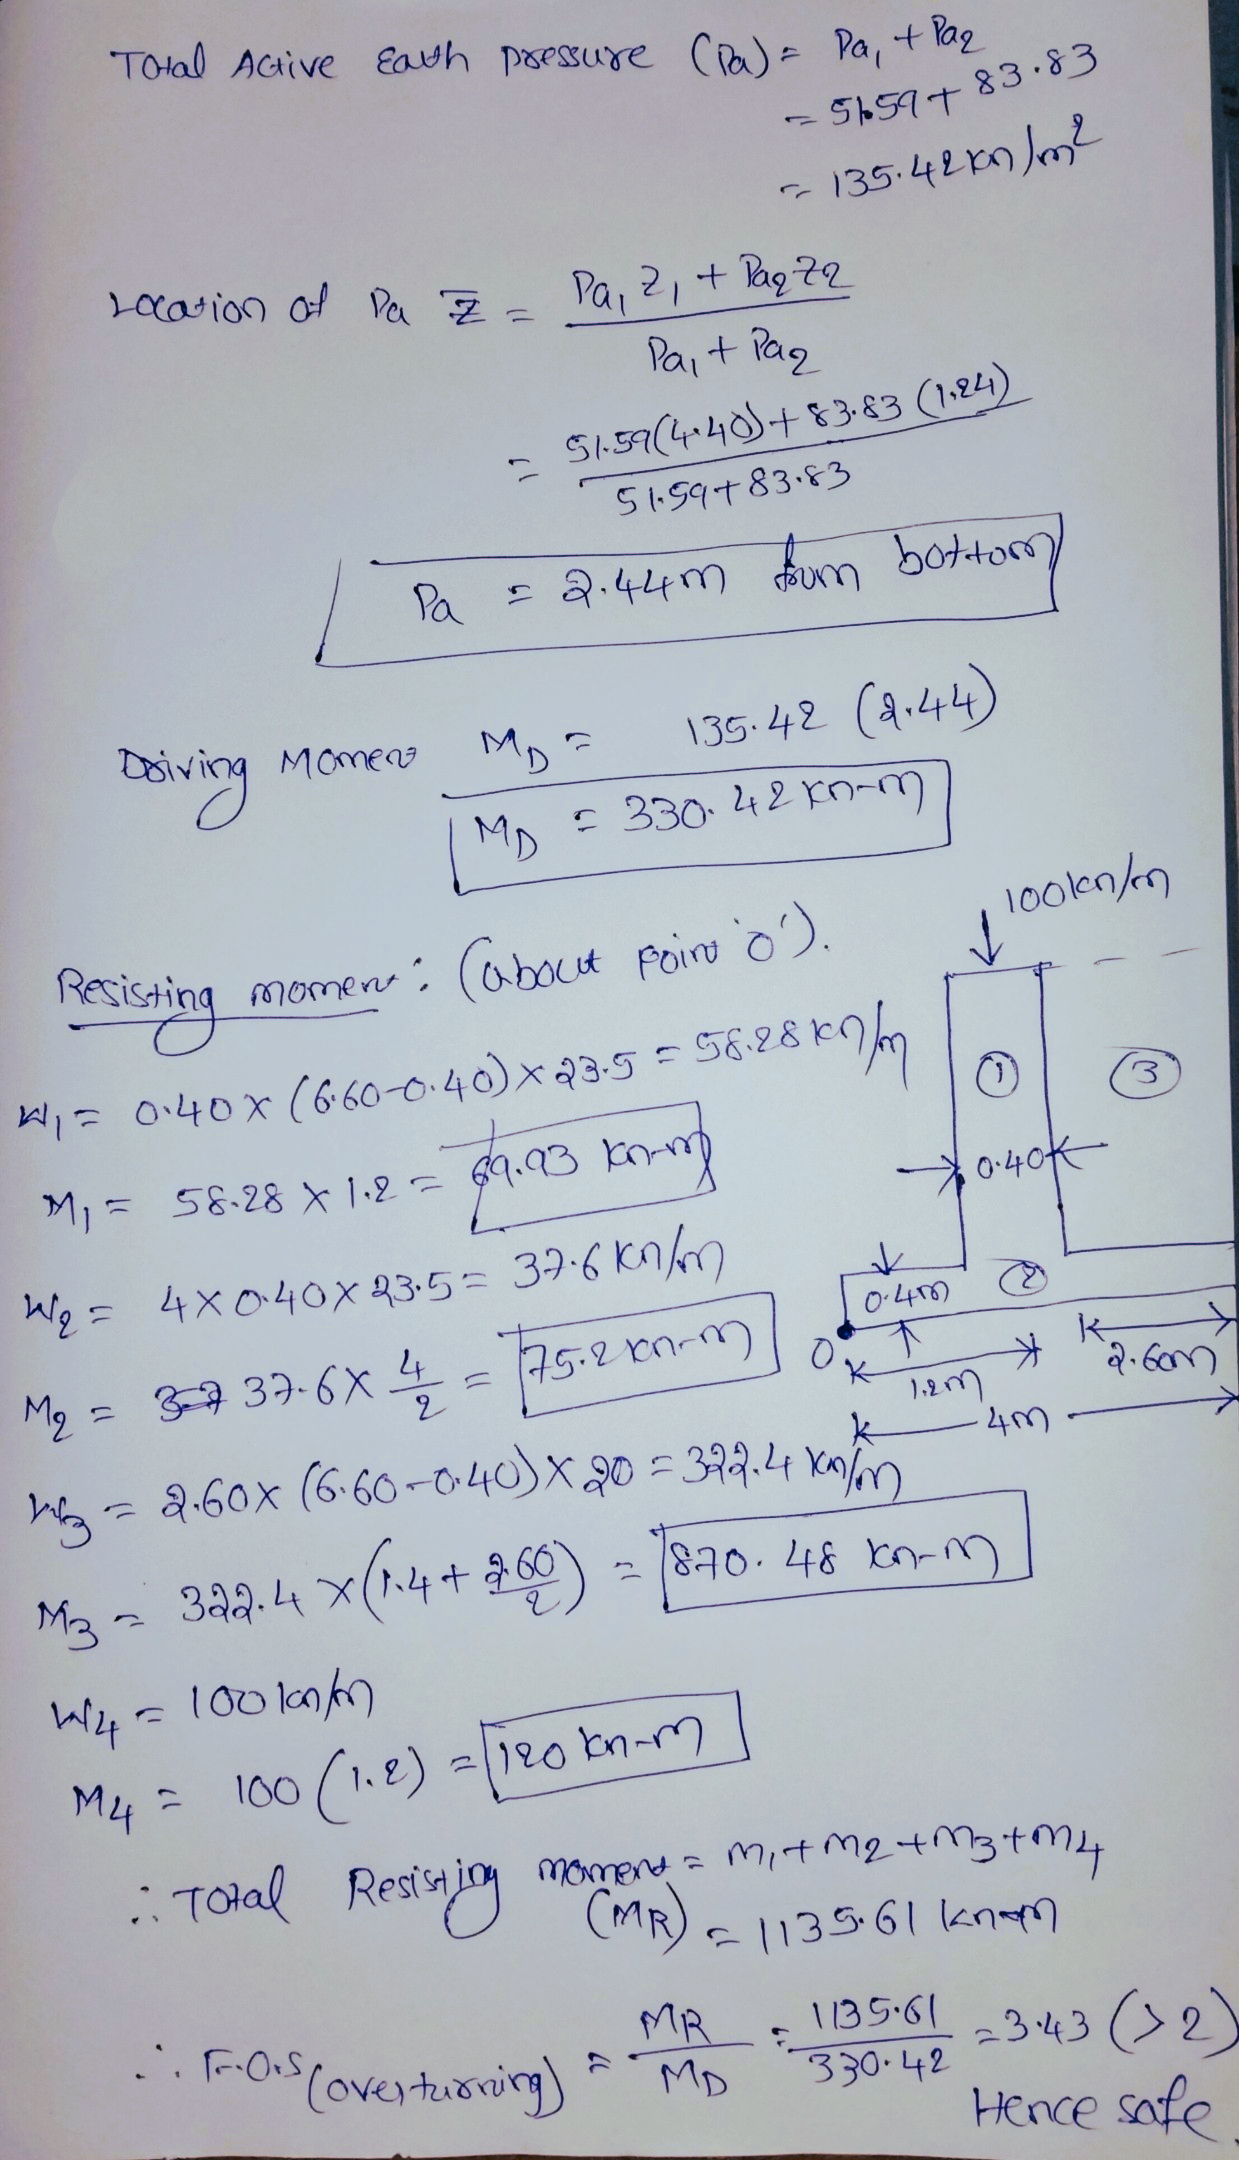 Total Active Earth pressure (Pa) = Pa₁ + Pa₂
= 51.59 + 83.83
= 135.42 kn/m²
Location of Pa z̄ = Pa₁ Z₁ + Pa₂ Z₂
Pa₁ + Pa₂
= 51.59(4.40) + 83.83 (1.24)
51.59 + 83.83
Pa = 2.44m from bottom
Driving Moment M_D = 135.42 (2.44)
M_D = 330.42 kn-m
100kn/m
Resisting moment : (about point 'o').
W₁ = 0.40 x (6.60-0.40) x 23.5 = 58.28 kn/m
① ③
M₁ = 58.28 x 1.2 = 69.93 kn-m
0.40
W₂ = 4 x 0.40 x 23.5 = 37.6 kn/m
0.4m ②
M₂ = 37.6 x 4/2 = 75.2 kn-m
O 1.2m 2.60m
4m
W₃ = 2.60 x (6.60-0.40) x 20 = 322.4 kn/m
M₃ = 322.4 x (1.4 + 2.60/2) = 870.48 kn-m
W₄ = 100 kn/m
M₄ = 100 (1.2) = 120 kn-m
∴ Total Resisting moment = m₁ + m₂ + m₃ + m₄
(MR) = 1135.61 kn-m
∴ F.O.S (overturning) = MR/MD = 1135.61/330.42 = 3.43 (> 2)
Hence safe.